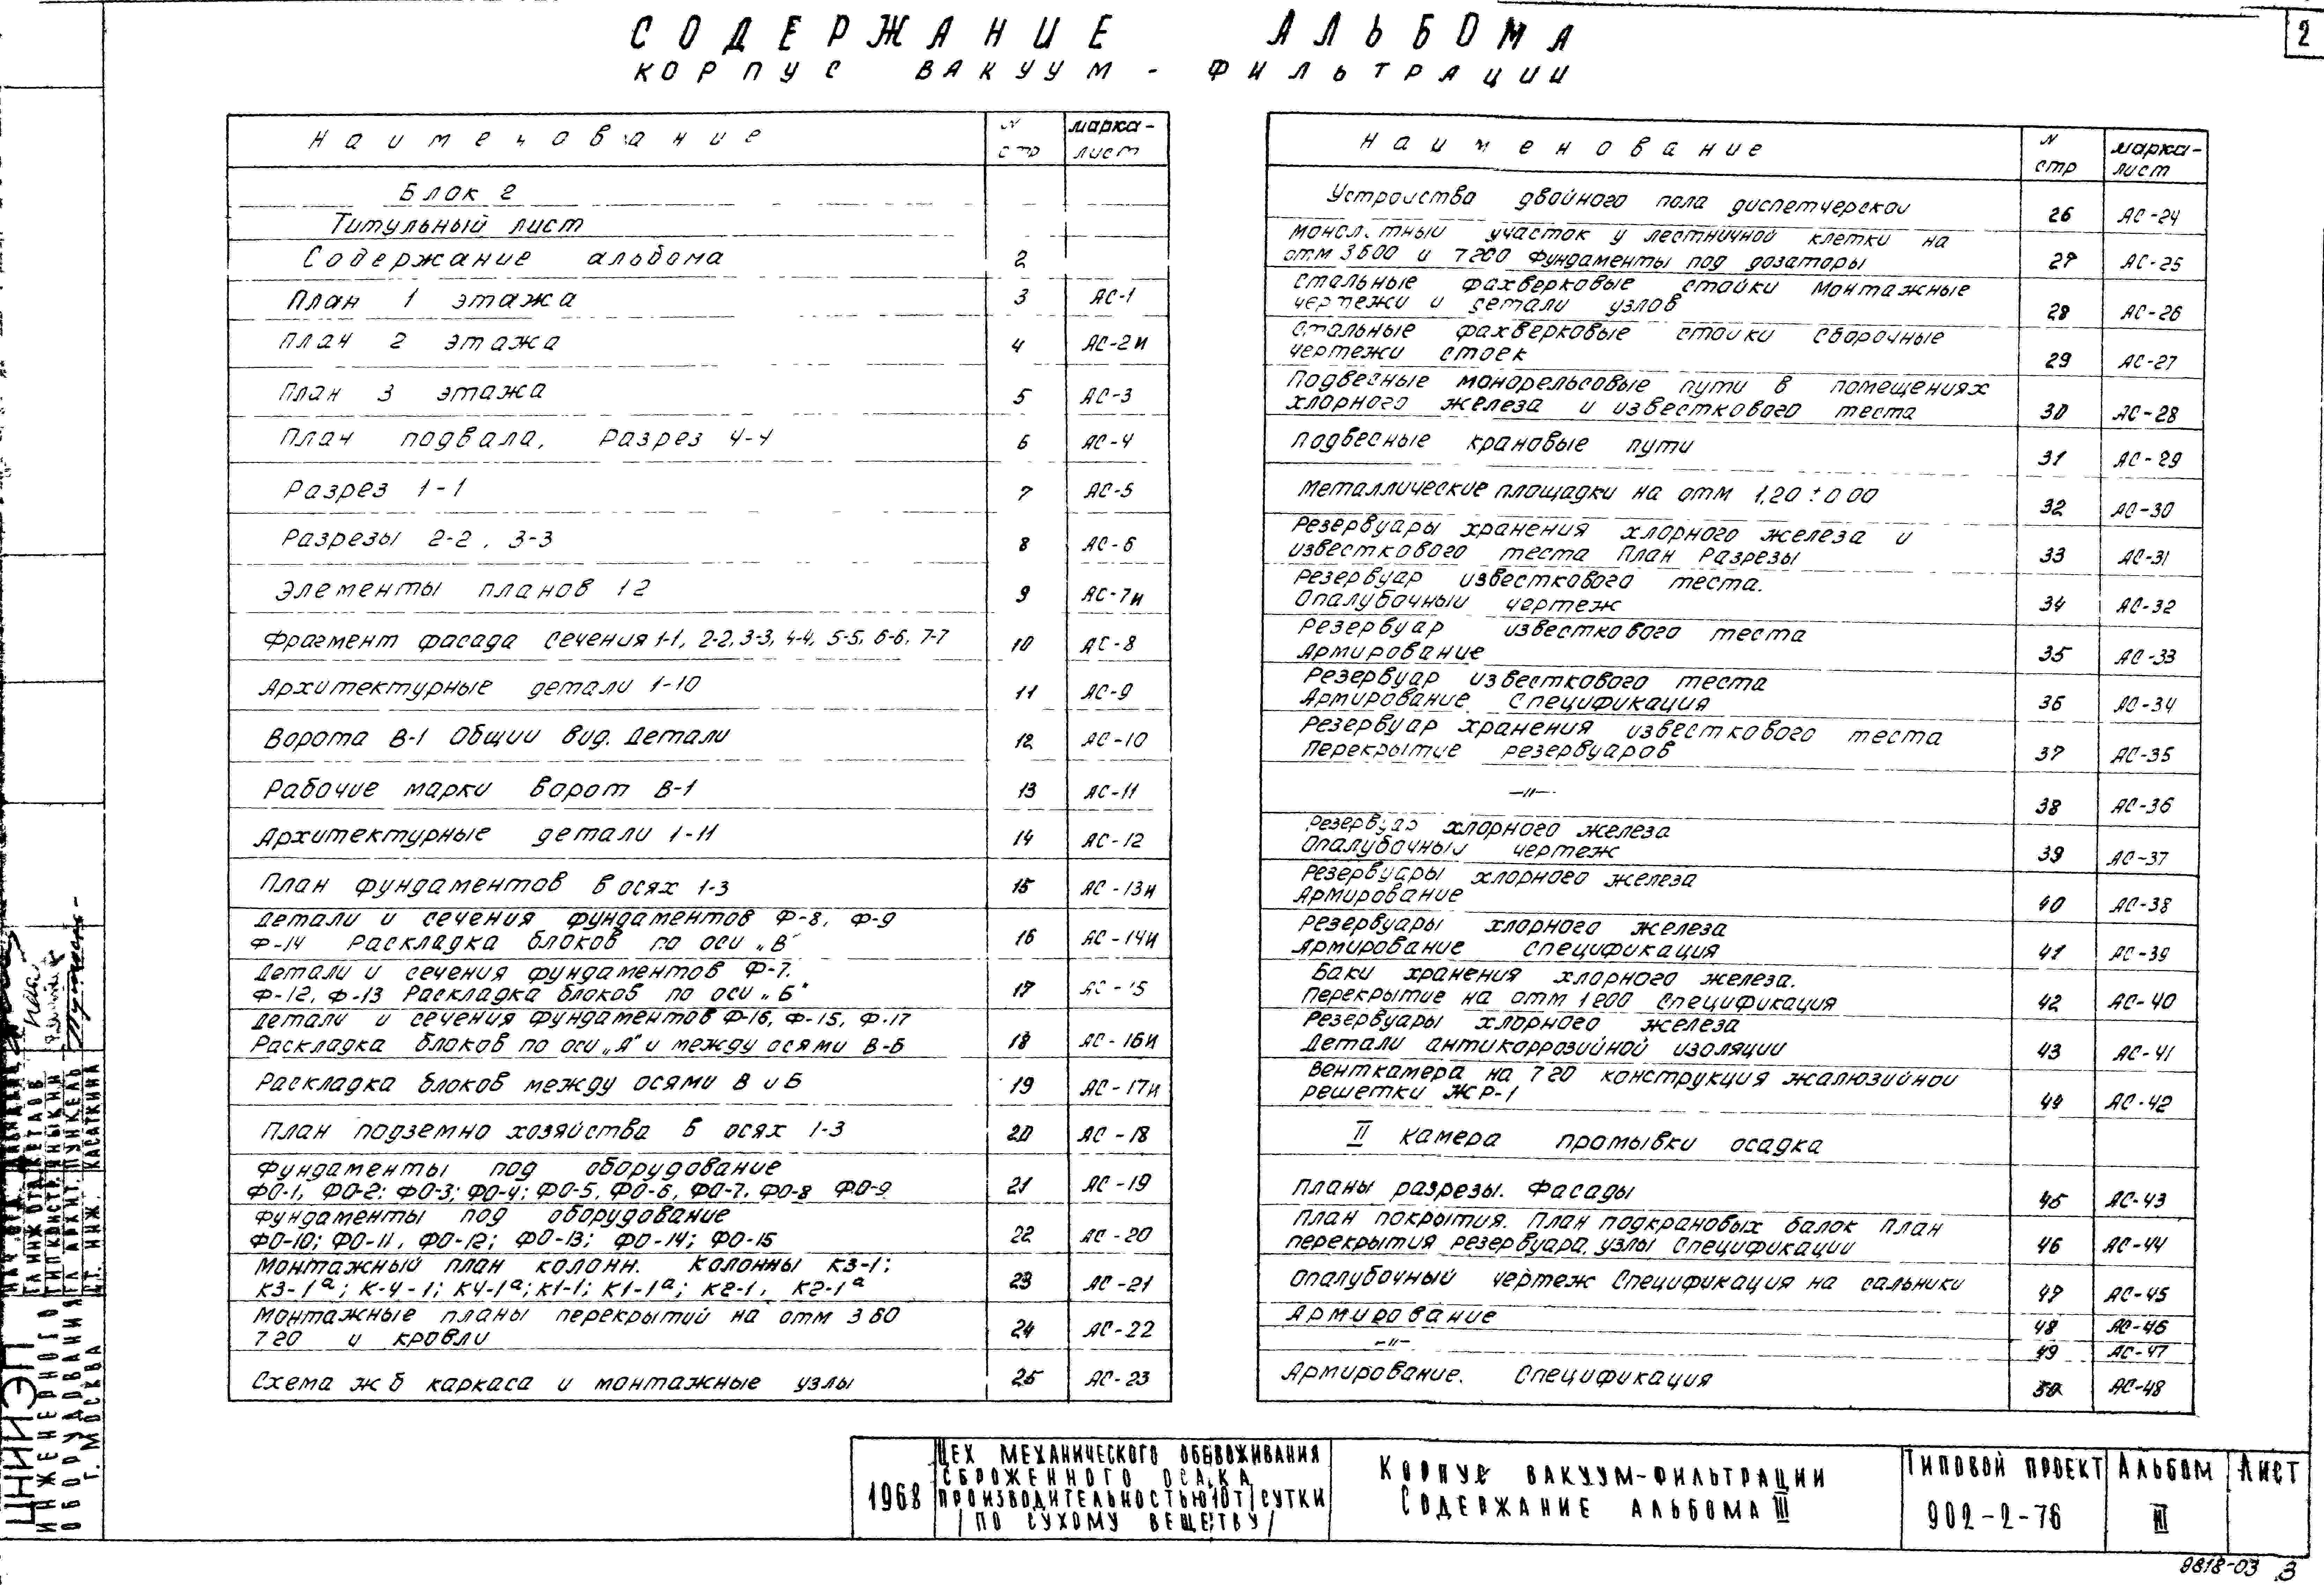 СОДЕРЖАНИЕ АЛЬБОМА
КОРПУС ВАКУУМ-ФИЛЬТРАЦИИ
2
Наименование N стр марка-лист
Блок 2
Титульный лист
Содержание альбома 2
План 1 этажа 3 АС-1
План 2 этажа 4 АС-2и
План 3 этажа 5 АС-3
План подвала, Разрез 4-4 6 АС-4
Разрез 1-1 7 АС-5
Разрезы 2-2, 3-3 8 АС-6
Элементы планов 1 2 9 АС-7и
Фрагмент фасада Сечения 1-1, 2-2, 3-3, 4-4, 5-5, 6-6, 7-7 10 АС-8
Архитектурные детали 1-10 11 АС-9
Ворота В-1 Общий вид. Детали 12 АС-10
Рабочие марки ворот В-1 13 АС-11
Архитектурные детали 1-11 14 АС-12
План фундаментов в осях 1-3 15 АС-13и
Детали и сечения фундаментов Ф-8, Ф-9
Ф-14 Раскладка блоков по оси „В" 16 АС-14и
Детали и сечения фундаментов Ф-7.
Ф-12, Ф-13 Раскладка блоков по оси „Б" 17 АС-15
Детали и сечения фундаментов Ф-16, Ф-15, Ф-17
Раскладка блоков по оси „А" и между осями В-Б 18 АС-16и
Раскладка блоков между осями В и Б 19 АС-17и
План подземно хозяйства в осях 1-3 20 АС-18
Фундаменты под оборудование
ФО-1, ФО-2; ФО-3; ФО-4; ФО-5, ФО-6, ФО-7, ФО-8 ФО-9 21 АС-19
Фундаменты под оборудование
ФО-10; ФО-11, ФО-12; ФО-13; ФО-14; ФО-15 22 АС-20
Монтажный план колонн. Колонны К3-1;
К3-1а; К-4-1; К4-1а; К1-1; К1-1а; К2-1, К2-1а 23 АС-21
Монтажные планы перекрытий на отм 3 60
7 20 и кровли 24 АС-22
Схема ж б каркаса и монтажные узлы 25 АС-23
Наименование N стр марка-лист
Устройства двойного пола диспетчерской 26 АС-24
участок у лестничной клетки на
отм 3600 и 7200 Фундаменты под дозаторы 27 АС-25
Стальные фахверковые стойки Монтажные
чертежи и детали узлов 28 АС-26
Стальные фахверковые стойки Сборочные
чертежи стоек 29 АС-27
Подвесные монорельсовые пути в помещениях
хлорного железа и известкового теста 30 АС-28
Подвесные крановые пути 31 АС-29
Металлические площадки на отм 1,20 ± 0 00 32 АС-30
Резервуары хранения хлорного железа и
известкового теста План Разрезы 33 АС-31
Резервуар известкового теста.
Опалубочный чертеж 34 АС-32
Резервуар известкового теста
Армирование 35 АС-33
Резервуар известкового теста
Армирование Спецификация 36 АС-34
Резервуар хранения известкового теста
Перекрытие резервуаров 37 АС-35
—"— 38 АС-36
Резервуар хлорного железа
Опалубочный чертеж 39 АС-37
Резервуары хлорного железа
Армирование 40 АС-38
Резервуары хлорного железа
Армирование спецификация 41 АС-39
Баки хранения хлорного железа.
Перекрытие на отм 1 200 Спецификация 42 АС-40
Резервуары хлорного железа
Детали антикоррозийной изоляции 43 АС-41
Венткамера на 7 20 конструкция жалюзийной
решетки ЖР-1 44 АС-42
II камера промывки осадка
Планы разрезы. Фасады 45 АС-43
План покрытия. План подкрановых балок План
перекрытия резервуара, узлы Спецификации 46 АС-44
Опалубочный чертеж Спецификация на сальники 47 АС-45
Армирование 48 АС-46
—"— 49 АС-47
Армирование. Спецификация 50 АС-48
1968
ЦЕХ МЕХАНИЧЕСКОГО ОБЕЗВОЖИВАНИЯ
СБРОЖЕННОГО ОСАДКА
ПРОИЗВОДИТЕЛЬНОСТЬЮ 10 Т/СУТКИ
/ПО СУХОМУ ВЕЩЕСТВУ/
КОРПУС ВАКУУМ-ФИЛЬТРАЦИИ
СОДЕРЖАНИЕ АЛЬБОМА III
ТИПОВОЙ ПРОЕКТ
902-2-76
АЛЬБОМ
III
ЛИСТ
8818-03 3
ЦНИИЭП
ИНЖЕНЕРНОГО
ОБОРУДОВАНИЯ
Г. МОСКВА
ПУНКЕЛЬ
СТ. ИНЖ. КАСАТКИНА